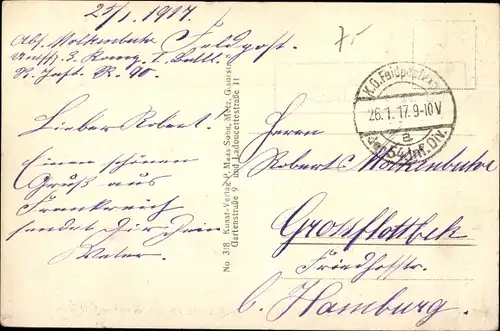 25/1. 1917.
Feldpost.
7,-
Abs. Molkenbuhr
Untffz. 3. Komp. 1. Batl.
R. Inft. R. 90.
Lieber Robert.
Einen schönen
Gruß aus
Frankreich
sendet Dir Dein
Vater.
No 318 Kunst-Verlag P. Maas Sohn, Metz,
Gartenstraße 9 und Ladoucettestraße 11
K.D.Feldpostexp.
26.1.17.9-10V
a
der 54.Inf.Div.
Herrn
Robert Molkenbuhr
Grossflottbek
Friedhofstr.
b. Hamburg.